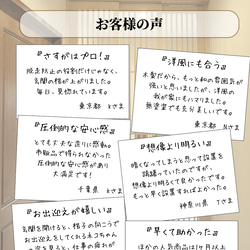 お客様の声
『さすがはプロ！』
脱走防止の役割だけじゃなく、
玄関の格が上がりました。
毎日、見惚れています。
東京都 Kさま
『洋風にも合う』
木製だから、もっと和の雰囲気が
強いと思いましたが、洋風の
我が家にもハマりました。
無塗装でも充分美しいです。
東京都 N
『圧倒的な安心感』
とても丈夫な造りに感動！
市販品で得られなかった
圧倒的な安心感があり
大満足です！
千葉県
『想像より明るい』
暗くなってしまうと思って設置を
躊躇っていたのですが、
想像より明るくて良かったです。
もっと早く設置すればよかった。
神奈川県 Tさま
『お出迎えが嬉しい』
玄関を開けると、格子の向こうで
お出迎えをしてくれるネコちゃん
『早くて助かった』
ほかの人気商品は1ヶ月以上